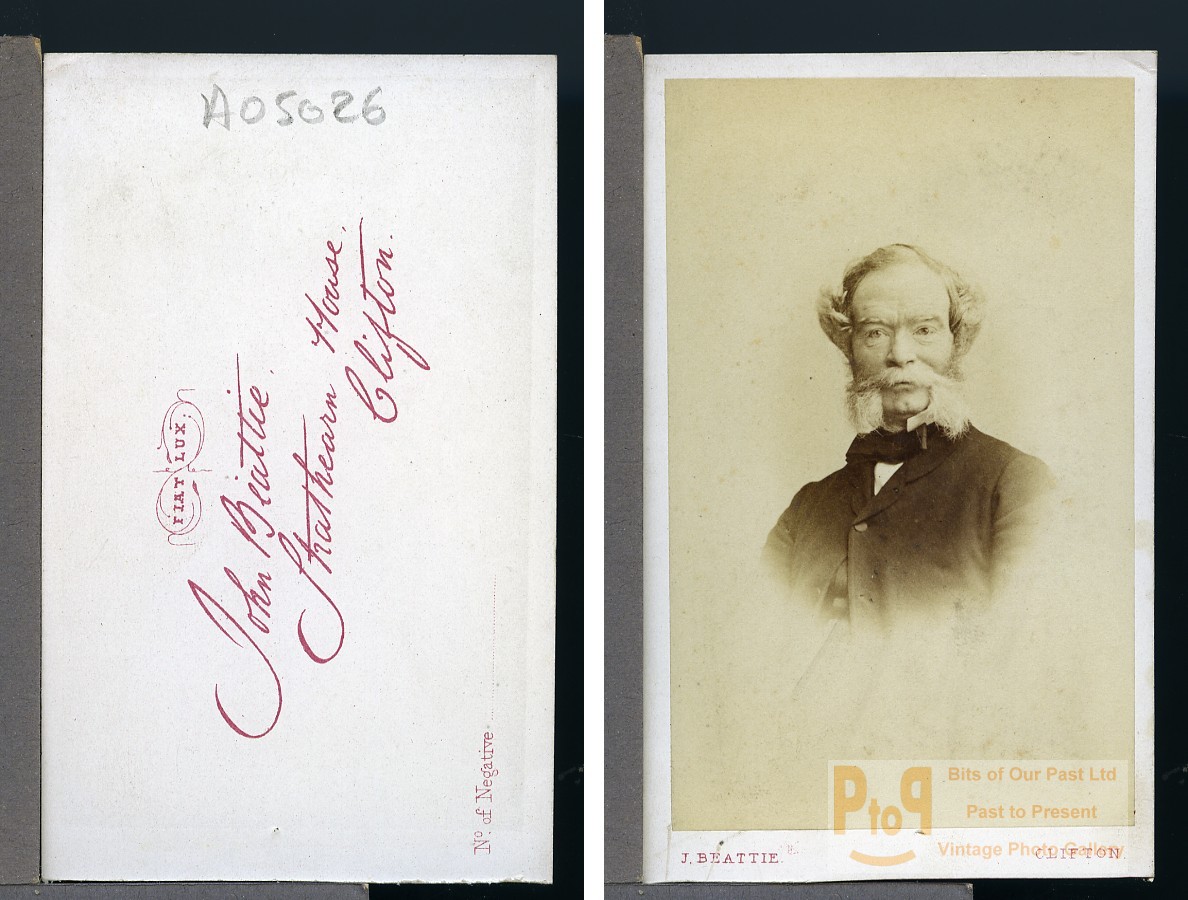 A05026
FIAT LUX
John Beattie.
Strathearn House.
Clifton.
No. of Negative
J. BEATTIE.
CLIFTON.
PtoP
Bits of Our Past Ltd
Past to Present
Vintage Photo Gallery